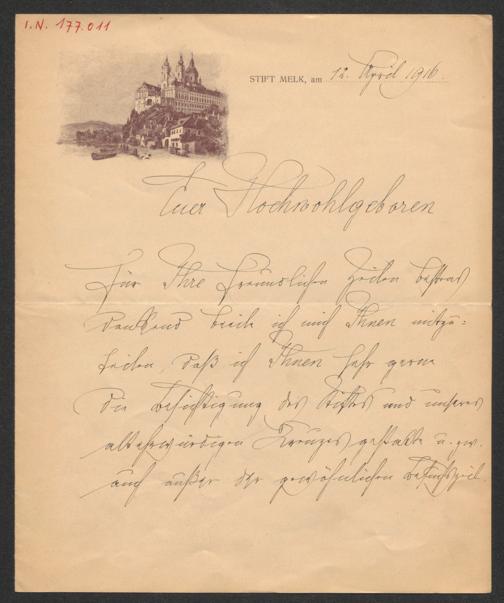 I.N. 177.011
STIFT MELK, am 12. April 1916.
Euer Hochwohlgeboren
Für Ihre freundlichen Zeilen bestens
dankend beeile ich mich Ihnen mitzu=
teilen, daß ich Ihnen sehr gerne
die Besichtigung des Stiftes und unseres
altehrwürdigen Kreuzes gestatte u. zw.
auch außer der gewöhnlichen Besuchszeit.